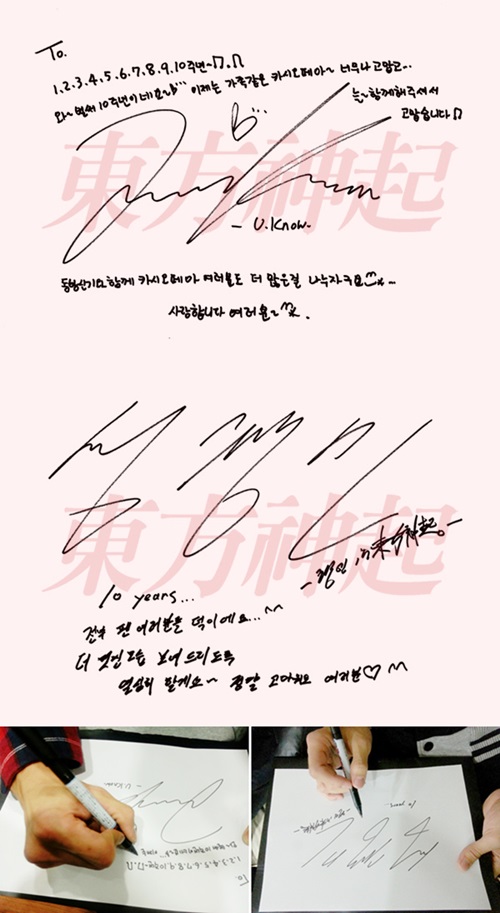 To.
1.2.3.4.5.6.7.8.9.10주년~ㅠ.ㅠ
와~ 벌써 10주년이네요~ㅎ··· 이제는 가족같은 카시오페아~ 너무나 고맙고···
늘~함께해주셔서
고맙습니다
東方神起
- U.Know.
동방신기와 함께 카시오페아 여러분도 더 많은걸 나누자구요^^···
사랑합니다 여러분~^^.
東方神起
-창민 in 東方神起-
10 years...
전부 팬 여러분들 덕이에요...^^
더 멋진 모습 보여 드리도록
열심히 할게요~ 정말 고마워요 여러분♡^^
- U.Know
1.2.3.4.5.6.7.8.9.10주년~ㅠ.ㅠ
To.
10 years